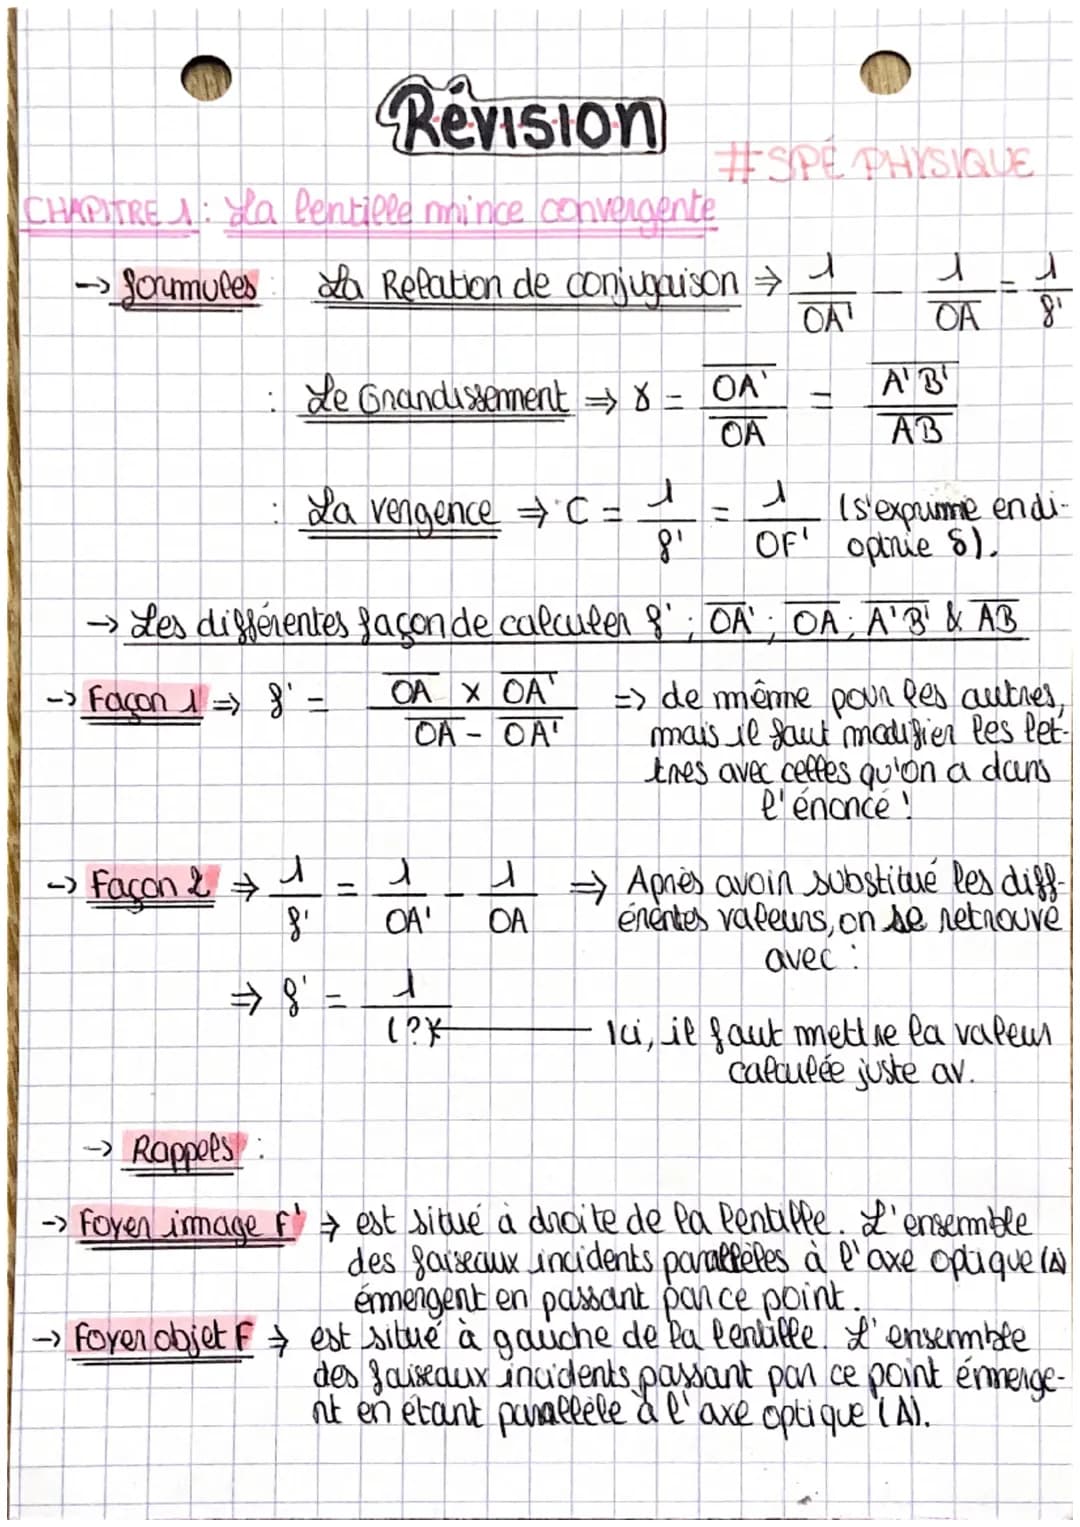 Révision
#SPÉ PHYSIQUE
CHAPITRE 1 : La lentille mince convergente
-> formules : La Relation de conjugaison ⇒ 1/OA' - 1/OA = 1/f'
: Le Grandissement ⇒ γ = OA'/OA = A'B'/AB
: La vergence ⇒ C = 1/f' = 1/OF' (s'exprime en di-
optrie δ).
→ Les différentes façon de calculer f' ; OA' ; OA ; A'B' & AB
-> Façon 1 ⇒ f' = OA x OA'/OA - OA' => de même pour les autres,
mais il faut modifier les let-
tres avec celles qu'on a dans
l'énoncé !
-> Façon 2 ⇒ 1/f' = 1/OA' - 1/OA ⇒ Après avoir substitué les diff-
érentes valeurs, on se retrouve
avec :
⇒ f' = 1/(?)
Ici, il faut mettre la valeur
calculée juste av.
-> Rappels :
-> Foyer image F' → est situé à droite de la lentille. L'ensemble
des faiseaux incidents parallèles à l'axe optique (Δ)
émergent en passant par ce point.
-> Foyer objet F → est situé à gauche de la lentille. L'ensemble
des faiseaux incidents passant par ce point émerge-
nt en étant parallèle à l'axe optique (Δ).